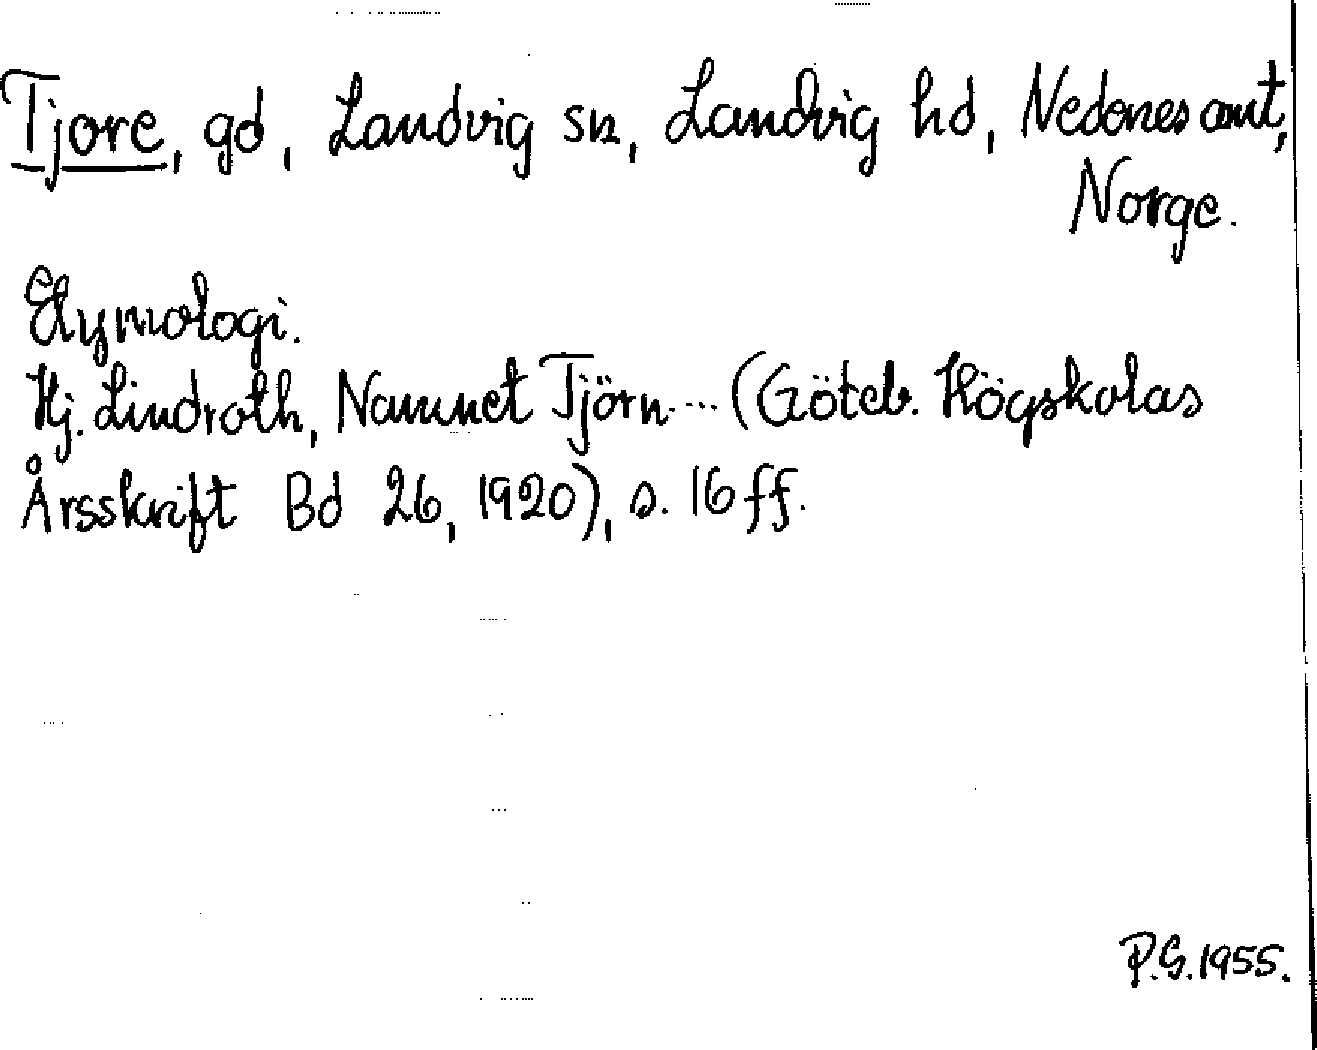 Tjore, gd, Landvig sn, Landvig hd, Nedenes amt,
Norge.
Etymologi.
Hj. Lindroth, Namnet Tjörn... (Göteb. Högskolas
Årsskrift Bd 26, 1920), s. 16 ff.
P.G. 1955.